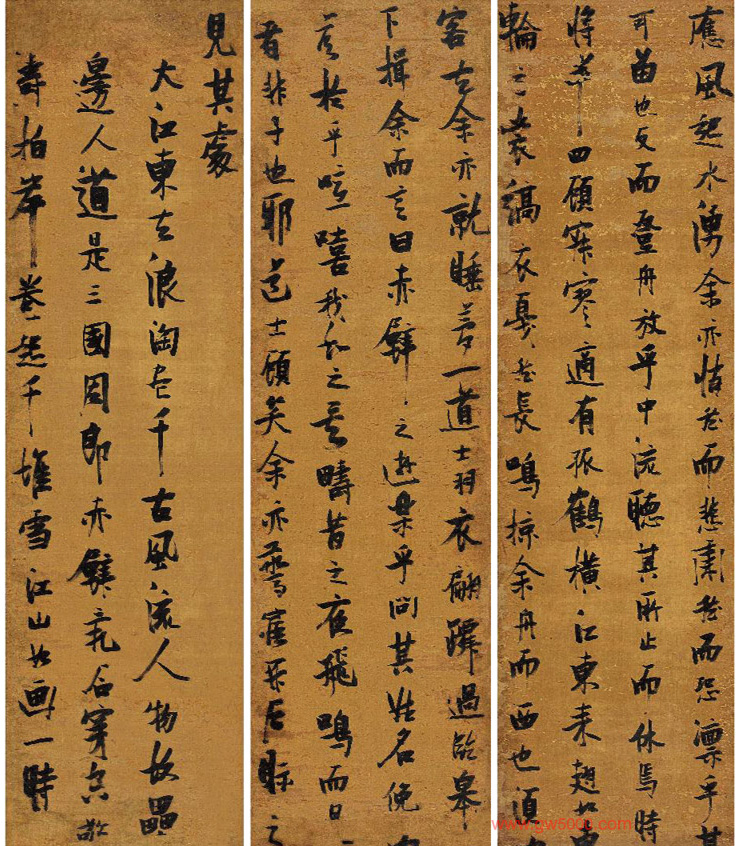 應風起水湧余亦悄然而悲肅然而恐凜乎其
可留也反而登舟放乎中流聽其所止而休焉時
將半四顧寂寥適有孤鶴橫江東來翅如
輪之裳縞衣戛然長鳴掠余舟而西也須
客去余亦就睡夢一道士羽衣翩躚過臨皋
下揖余而言曰赤壁之遊樂乎問其姓名俛
言於乎噫嘻我知之矣疇昔之夜飛鳴而
者非子也耶道士顧笑余亦驚寤開戶視之
見其處
大江東去浪淘盡千古風流人物故壘
邊人道是三國周郎赤壁亂石穿空
濤拍岸卷起千堆雪江山如画一時